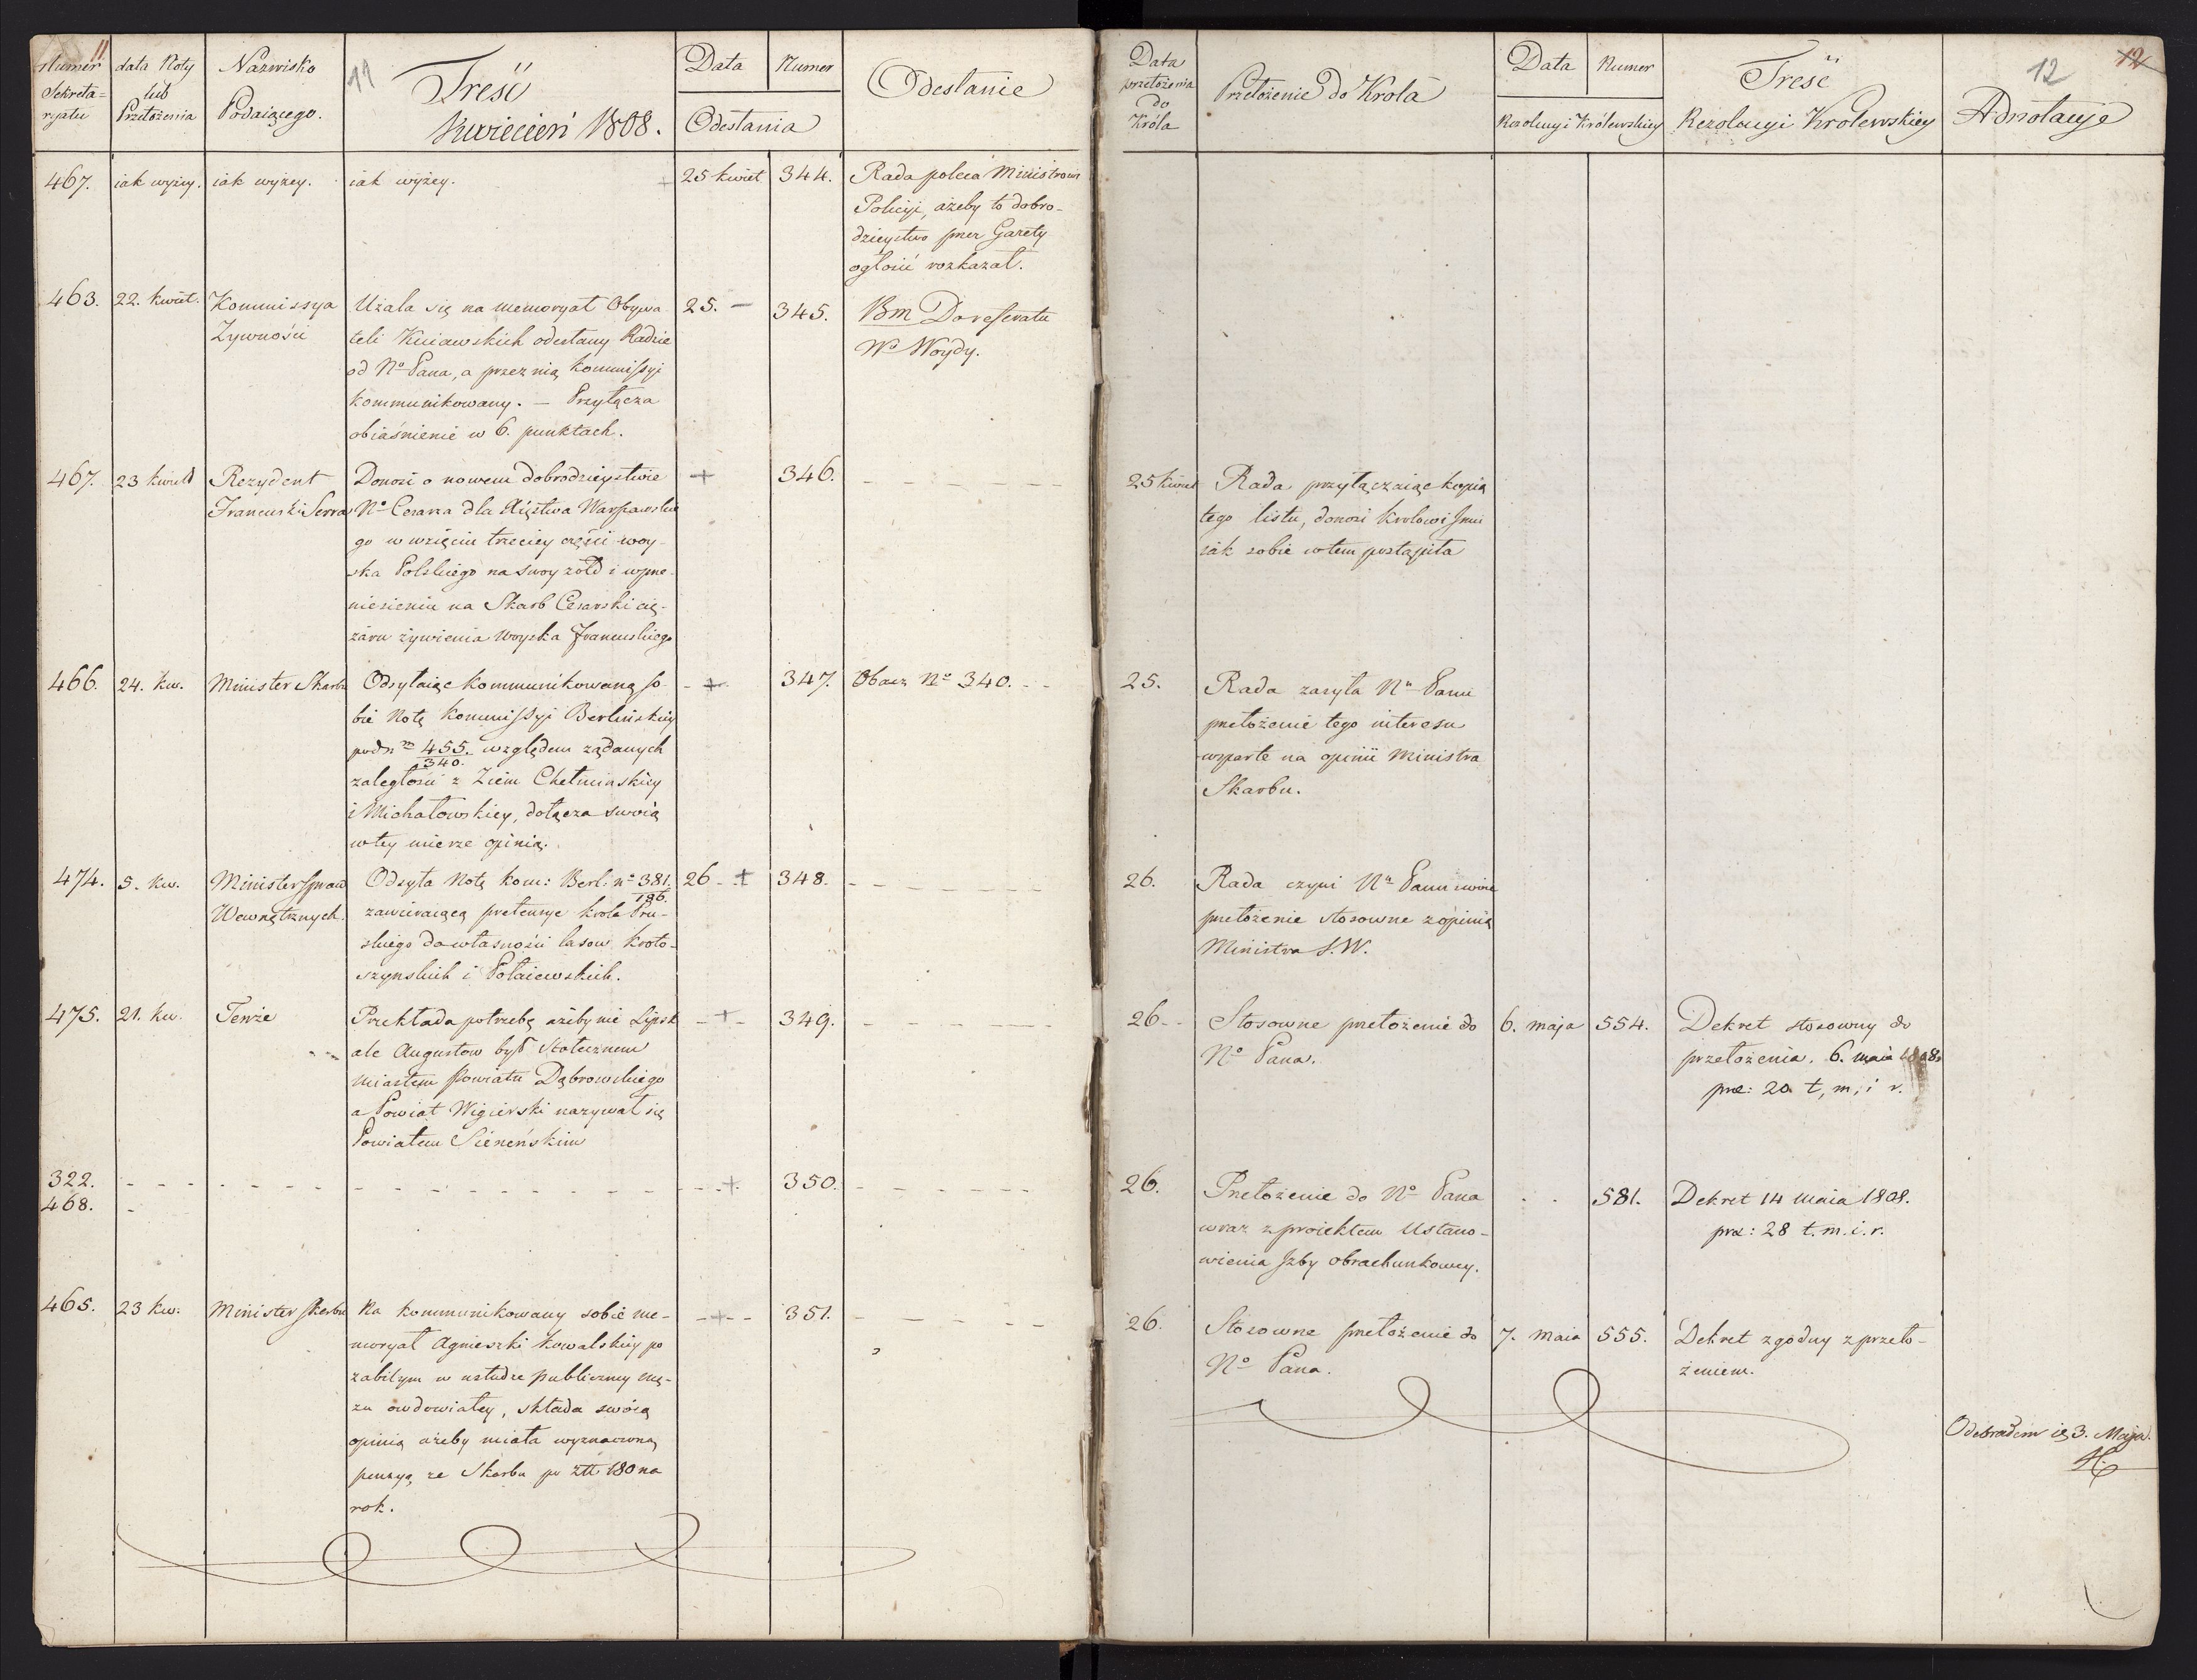 11.
Numer
Sekreta=
ryatu
data Noty
lub
Przełożenia
Nazwisko
Podaiącego.
11
Treść
Kwiecień 1808.
Data
Numer
Odesłania
Odesłanie
467.
iak wyżey.
iak wyżey.
iak wyżey.
25 kwiet
344.
Rada poleca Ministrowi
Policyi, ażeby to dobro-
dzieystwo przez Gazety
ogłosić rozkazał.
463.
22. kwiet.
Kommissya
Zywności
Użala się na memoryał Obywa
teli Kuiawskich odesłany Radzie
od No Pana, a przez nią Kommissyi
kommunikowany. — Przyłącza
obiaśnienie w 6. punktach.
25. —
345.
Bm Do referatu
Wo Woydy.
467.
23 kwiet
Rezydent
Francuski Serra
Donosi o nowem dobrodzieystwie
No Cesarza dla Xięstwa Warszawskie
go w wzięciu trzeciey części woy-
ska Polskiego na swoy żołd i wprze-
niesieniu na Skarb Cesarski cię-
żaru żywienia woyska francuskiego
+
346.
466.
24. kw.
Minister Skarbu
Odsyłaiąc kommunikowaną so-
bie Notę Kommissyi Berlińskiey
pod nm 455. względem żądanych
340.
zaległości z Ziem Chełmińskiey
i Michałowskiey, dołącza swoią
w tey mierze opinią.
- + -
347.
Obacz No 340. - -
474.
5. kw.
Minister Spraw
Wewnętrznych.
Odsyła Notę kom: Berl: no 381.
186.
zawieraiącą pretensye króla Pru-
skiego do własności lasow kroto-
szynskich i Połaiewskich.
26 - +
348.
475.
21. kw.
Tenże
Przekłada potrzebę ażeby nie Lipsk
ale Augustow był stołecznem
miastem Powiatu Dąbrowskiego
a Powiat Wigierski nazywał się
Powiatem Sieneńskim
- + -
349.
322.
468.
+
350.
465.
23 kw.
Minister Skarbu
Na kommunikowany sobie me-
moryał Agnieszki Kowalskiey po
zabitym w usłudze publiczney mę-
żu owdowiałey, składa swoią
opinią ażeby miała wyznaczoną
pensyą ze Skarbu po złł 180 na
rok.
- + - -
351.
Data
przełożenia
do
Króla
Przełożenie do Króla
Data
Numer
Rezolucyi Królewskiey
Treść
Rezolucyi Królewskiey
12
12
Adnotacye
25 kwiet
Rada przyłączaiąc kopią
tego listu, donosi Krolowi Jmci
iak sobie w tem postąpiła
25.
Rada zasyła Nu Panu
przełożenie tego interesu
wsparte na opinii Ministra
Skarbu.
26.
Rada czyni Nu Panu swoie
przełożenie stosowne z opinią
Ministra S. W.
26 - -
Stosowne przełożenie do
No Pana.
6. maja
554.
Dekret stosowny do
przełożenia. 6. maia 1808.
prae: 20 t, m, i r.
26.
Przełożenie do No Pana
wraz z proiektem Ustano-
wienia Izby obrachunkowey.
. .
581.
Dekret 14 maia 1808.
prae: 28 t. m. i. r.
26.
Stosowne przełożenie do
No Pana.
7. maia
555.
Dekret zgodny z przeło-
żeniem.
Odebrałem ie 3. Maja.